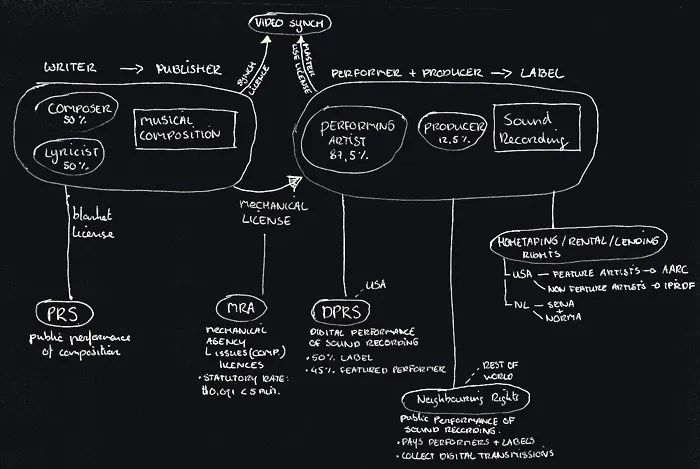 VIDEO SYNCH
SYNCH LICENCE
MASTER USE LICENSE
WRITER → PUBLISHER
PERFORMER + PRODUCER → LABEL
COMPOSER
50%
LYRICIST
50%
MUSICAL
COMPOSITION
PERFORMING
ARTIST
87,5%
PRODUCER
12,5%
Sound
Recording
MECHANICAL
LICENSE
blanket
license
HOMETAPING/RENTAL/LENDING
RIGHTS
USA — FEATURE ARTISTS → AARC
NON FEATURE ARTISTS → IPRDF
NL — SENA
+
NORMA
PRS
public performance
of composition
MRA
MECHANICAL
AGENCY
ISSUES (COMP.)
LICENCES
• STATUTORY RATE:
$0,091 < 5 min.
USA
DPRS
DIGITAL PERFORMANCE
OF SOUND RECORDING
• 50% LABEL
• 45% FEATURED PERFORMER
REST OF
WORLD
Neighbouring Rights
Public PERFORMANCE OF
SOUND RECORDING.
• PAYS PERFORMERS + LABELS
• COLLECT DIGITAL TRANSMISSIONS